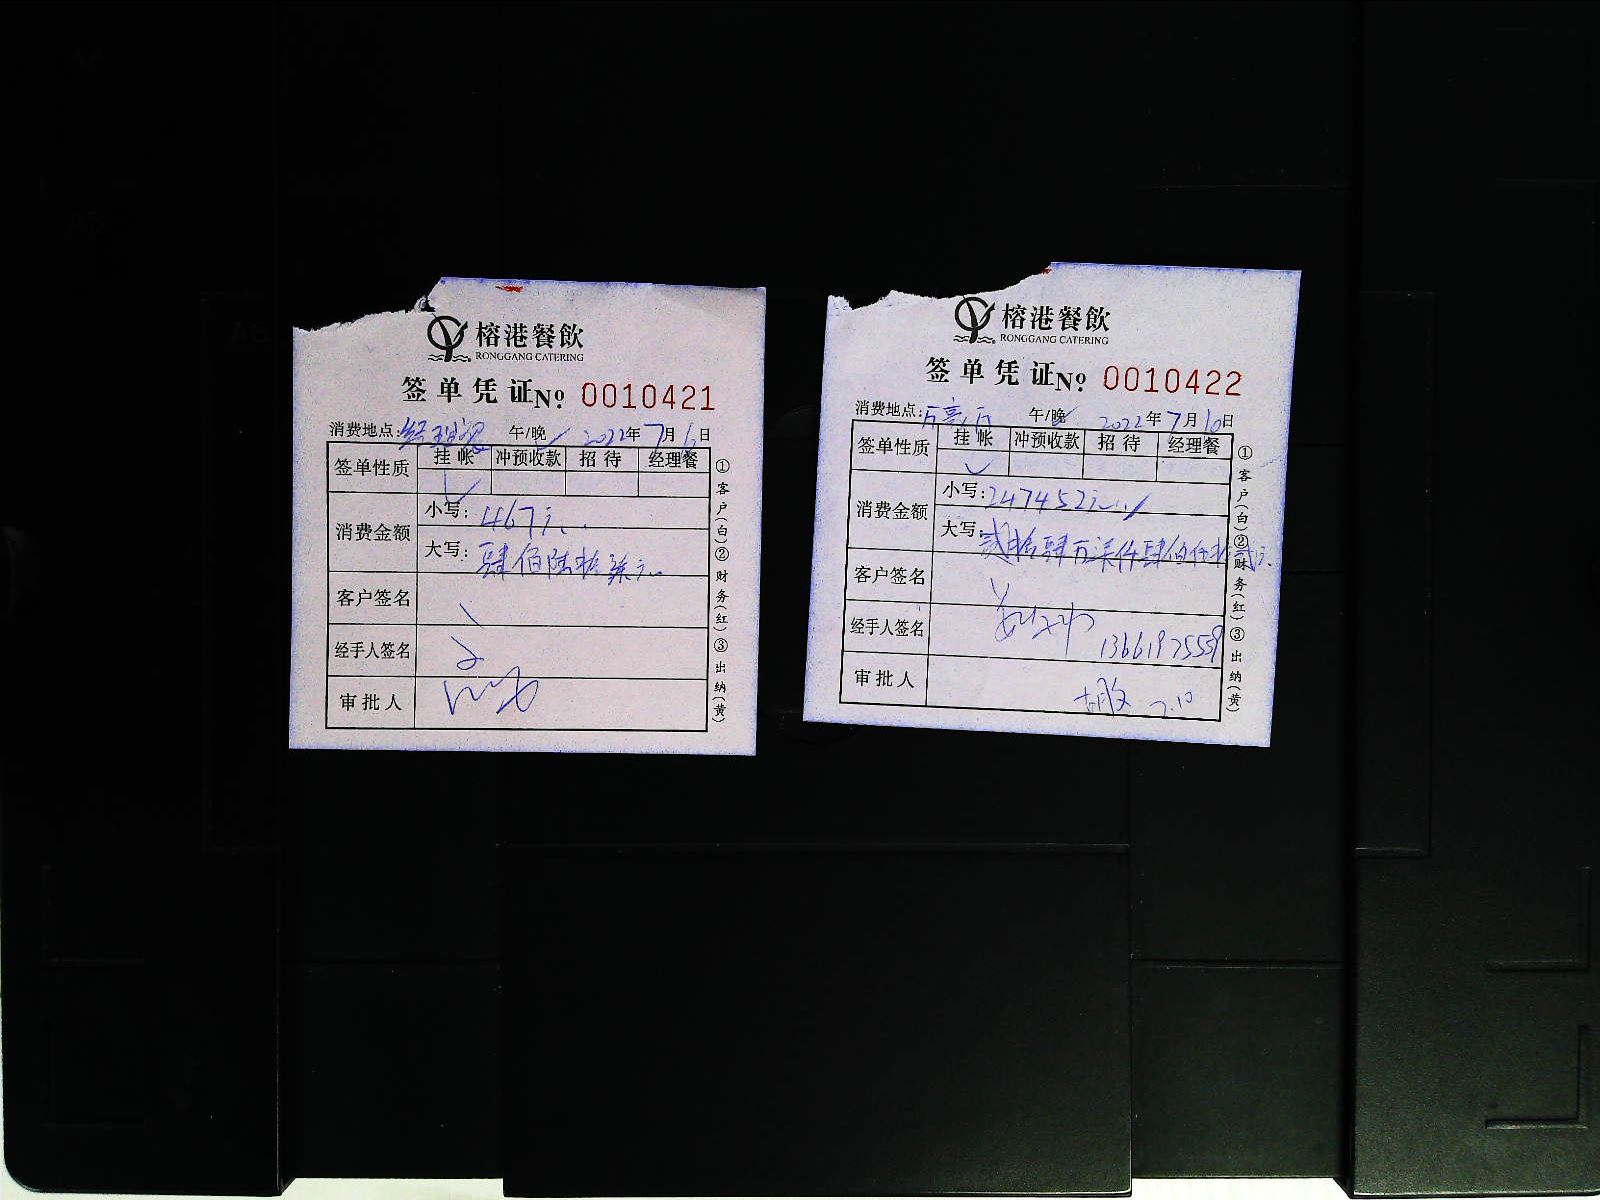 榕港餐飲
RONGGANG CATERING
签单凭证 No: 0010421
消费地点: 经理 午/晚 ✓ 2022年7月6日
签单性质 挂帐 冲预收款 招待 经理餐
✓
消费金额
小写: 467元
大写: 肆佰陆拾柒元
客户签名
经手人签名
审批人
①客户(白)②财务(红)③出纳(黄)
榕港餐飲
RONGGANG CATERING
签单凭证 No: 0010422
消费地点: 万豪 午/晚 ✓ 2022年7月10日
签单性质 挂帐 冲预收款 招待 经理餐
✓
消费金额
小写: 247452元
大写: 贰拾肆万柒仟肆佰伍拾贰元
客户签名
经手人签名 13661975559
审批人 7.10
①客户(白)②财务(红)③出纳(黄)